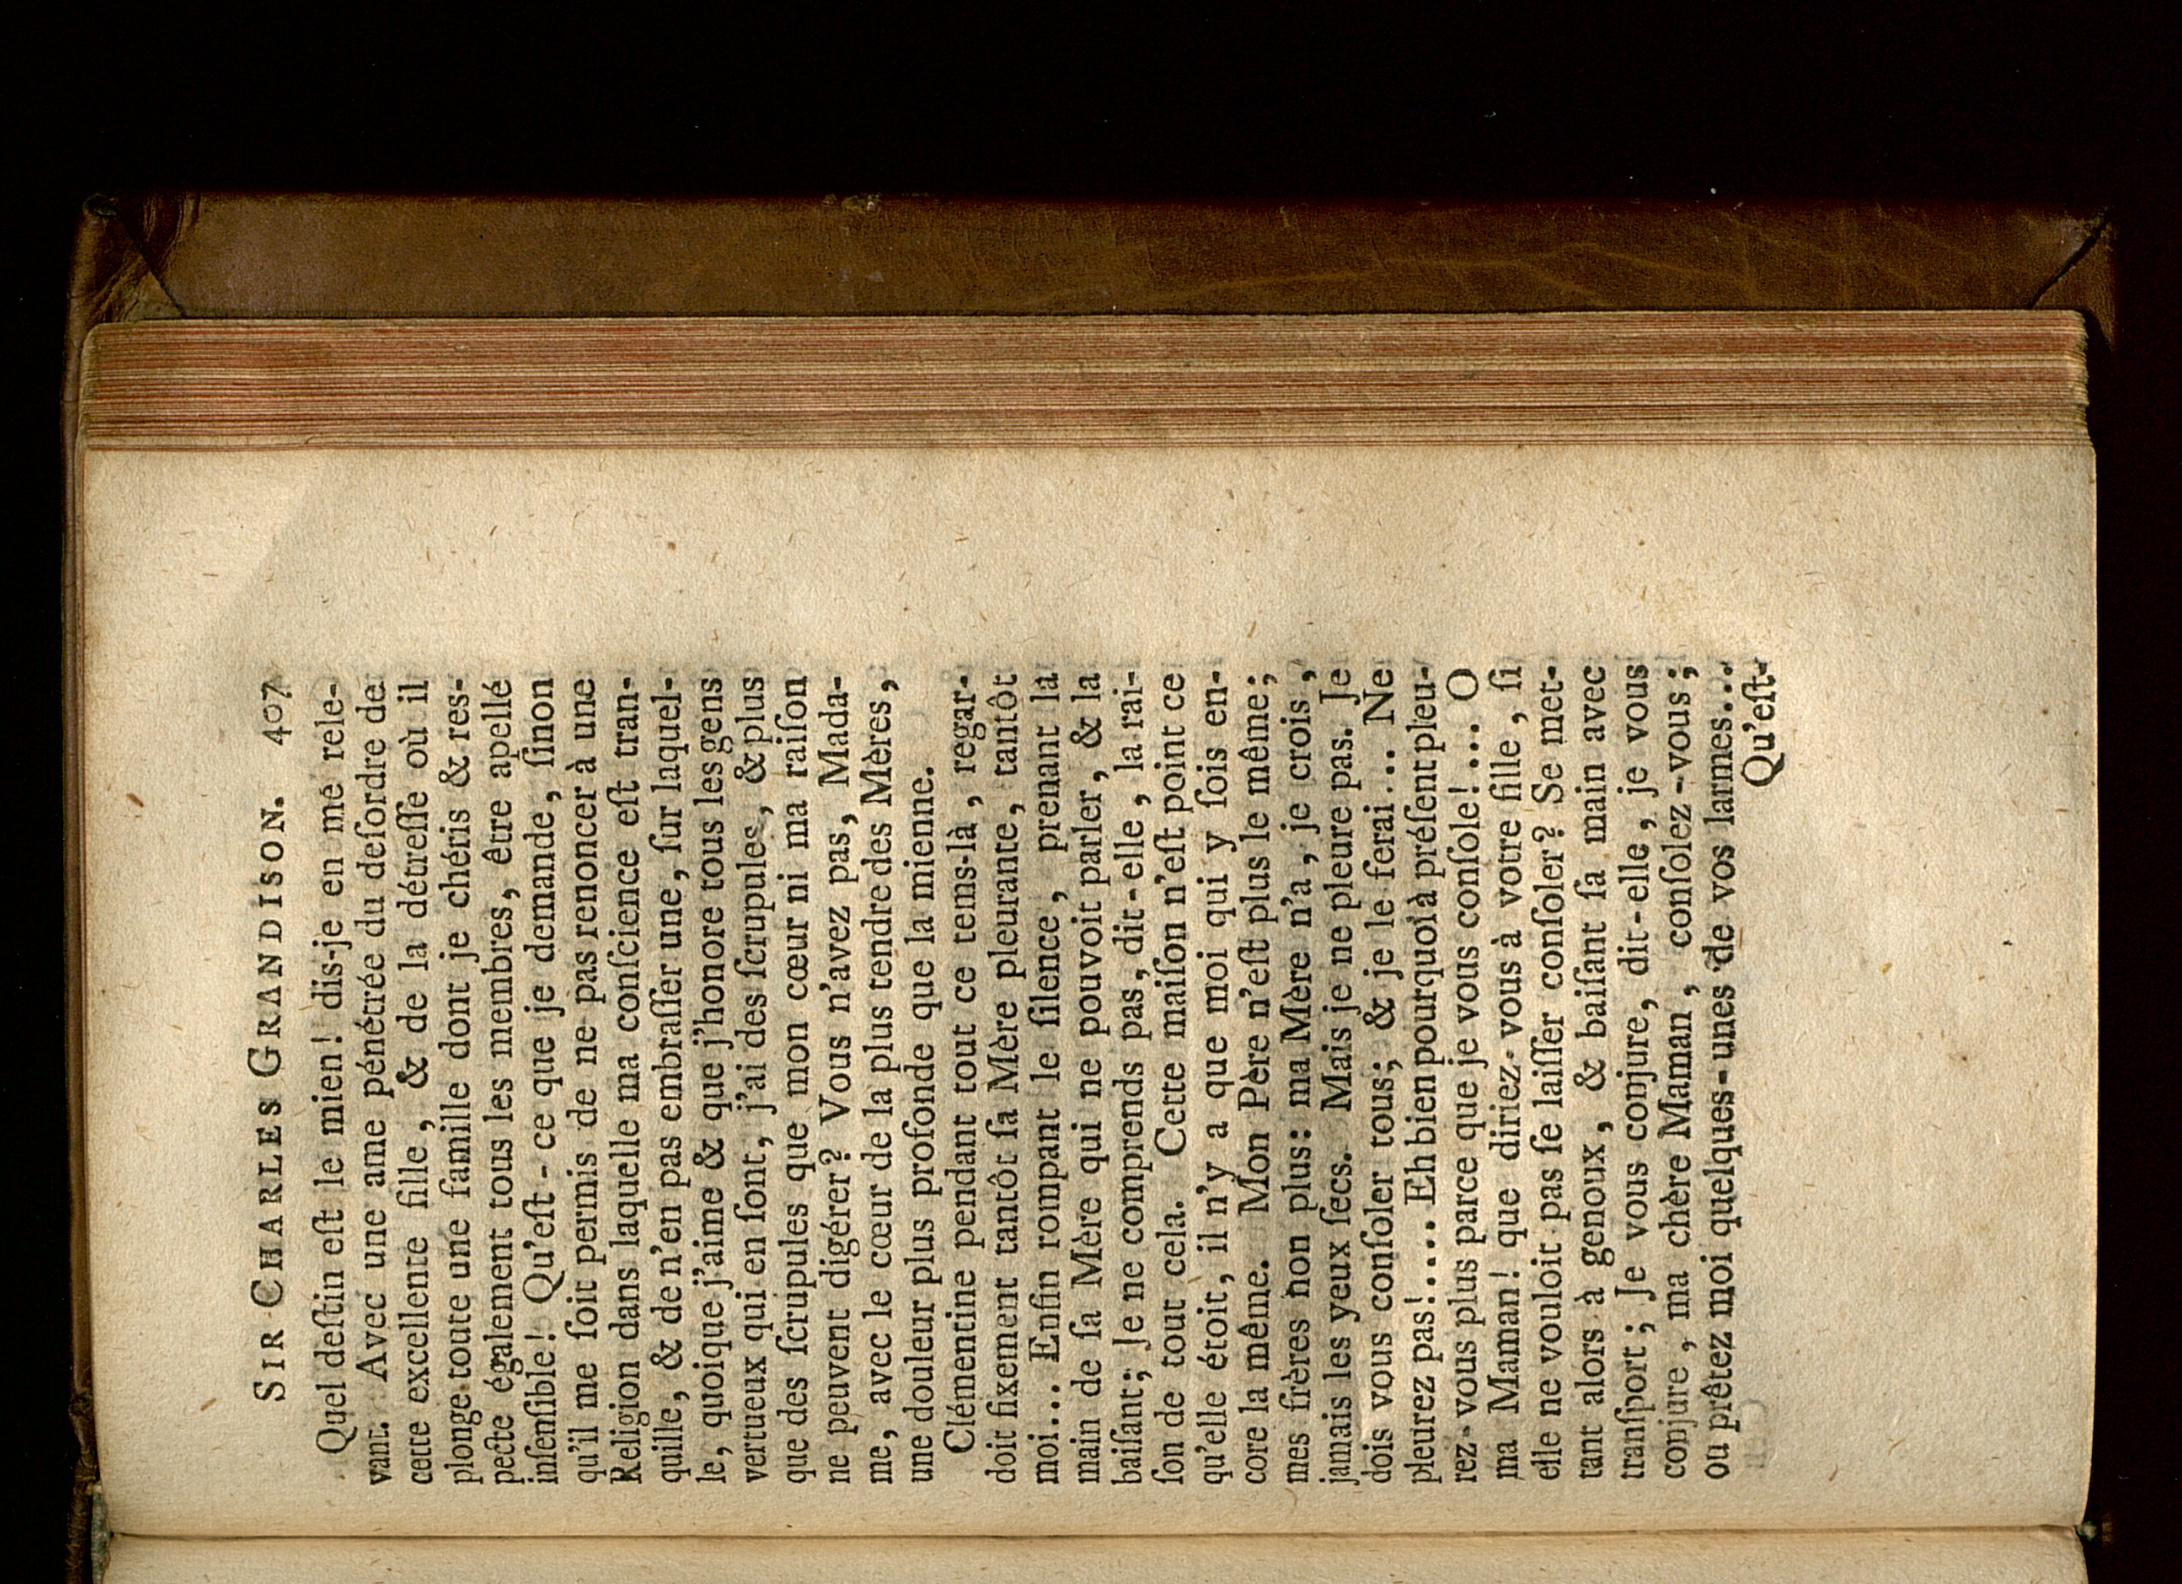 SIR CHARLES GRANDISON. 407
Quel deſtin eſt le mien! dis-je en me rele-
vant. Avec une ame pénétrée du deſordre de
cette excellente fille, & de la détreſſe où il
plonge toute une famille dont je chéris & res-
pecte également tous les membres, être apellé
inſenſible! Qu'eſt-ce que je demande, ſinon
qu'il me ſoit permis de ne pas renoncer à une
Religion dans laquelle ma conſcience eſt tran-
quille, & de n'en pas embraſſer une, ſur laquel-
le, quoique j'aime & que j'honore tous les gens
vertueux qui en ſont, j'ai des ſcrupules, & plus
que des ſcrupules que mon cœur ni ma raiſon
ne peuvent digérer? Vous n'avez pas, Mada-
me, avec le cœur de la plus tendre des Mères,
une douleur plus profonde que la mienne.
Clémentine pendant tout ce tems-là, regar-
doit fixement tantôt ſa Mère pleurante, tantôt
moi... Enfin rompant le ſilence, prenant la
main de ſa Mère qui ne pouvoit parler, & la
baiſant; Je ne comprends pas, dit-elle, la rai-
ſon de tout cela. Cette maiſon n'eſt point ce
qu'elle étoit, il n'y a que moi qui y ſois en-
core la même. Mon Père n'eſt plus le même;
mes frères non plus: ma Mère n'a, je crois,
jamais les yeux ſecs. Mais je ne pleure pas. Je
dois vous conſoler tous; & je le ferai... Ne
pleurez pas!.... Eh bien pourquoi à préſent pleu-
rez-vous plus parce que je vous conſole!... O
ma Maman! que diriez-vous à votre fille, ſi
elle ne vouloit pas ſe laiſſer conſoler? Se met-
tant alors à genoux, & baiſant ſa main avec
tranſport; Je vous conjure, dit-elle, je vous
conjure, ma chère Maman, conſolez-vous;
ou prêtez moi quelques-unes de vos larmes...
Qu'eſt-